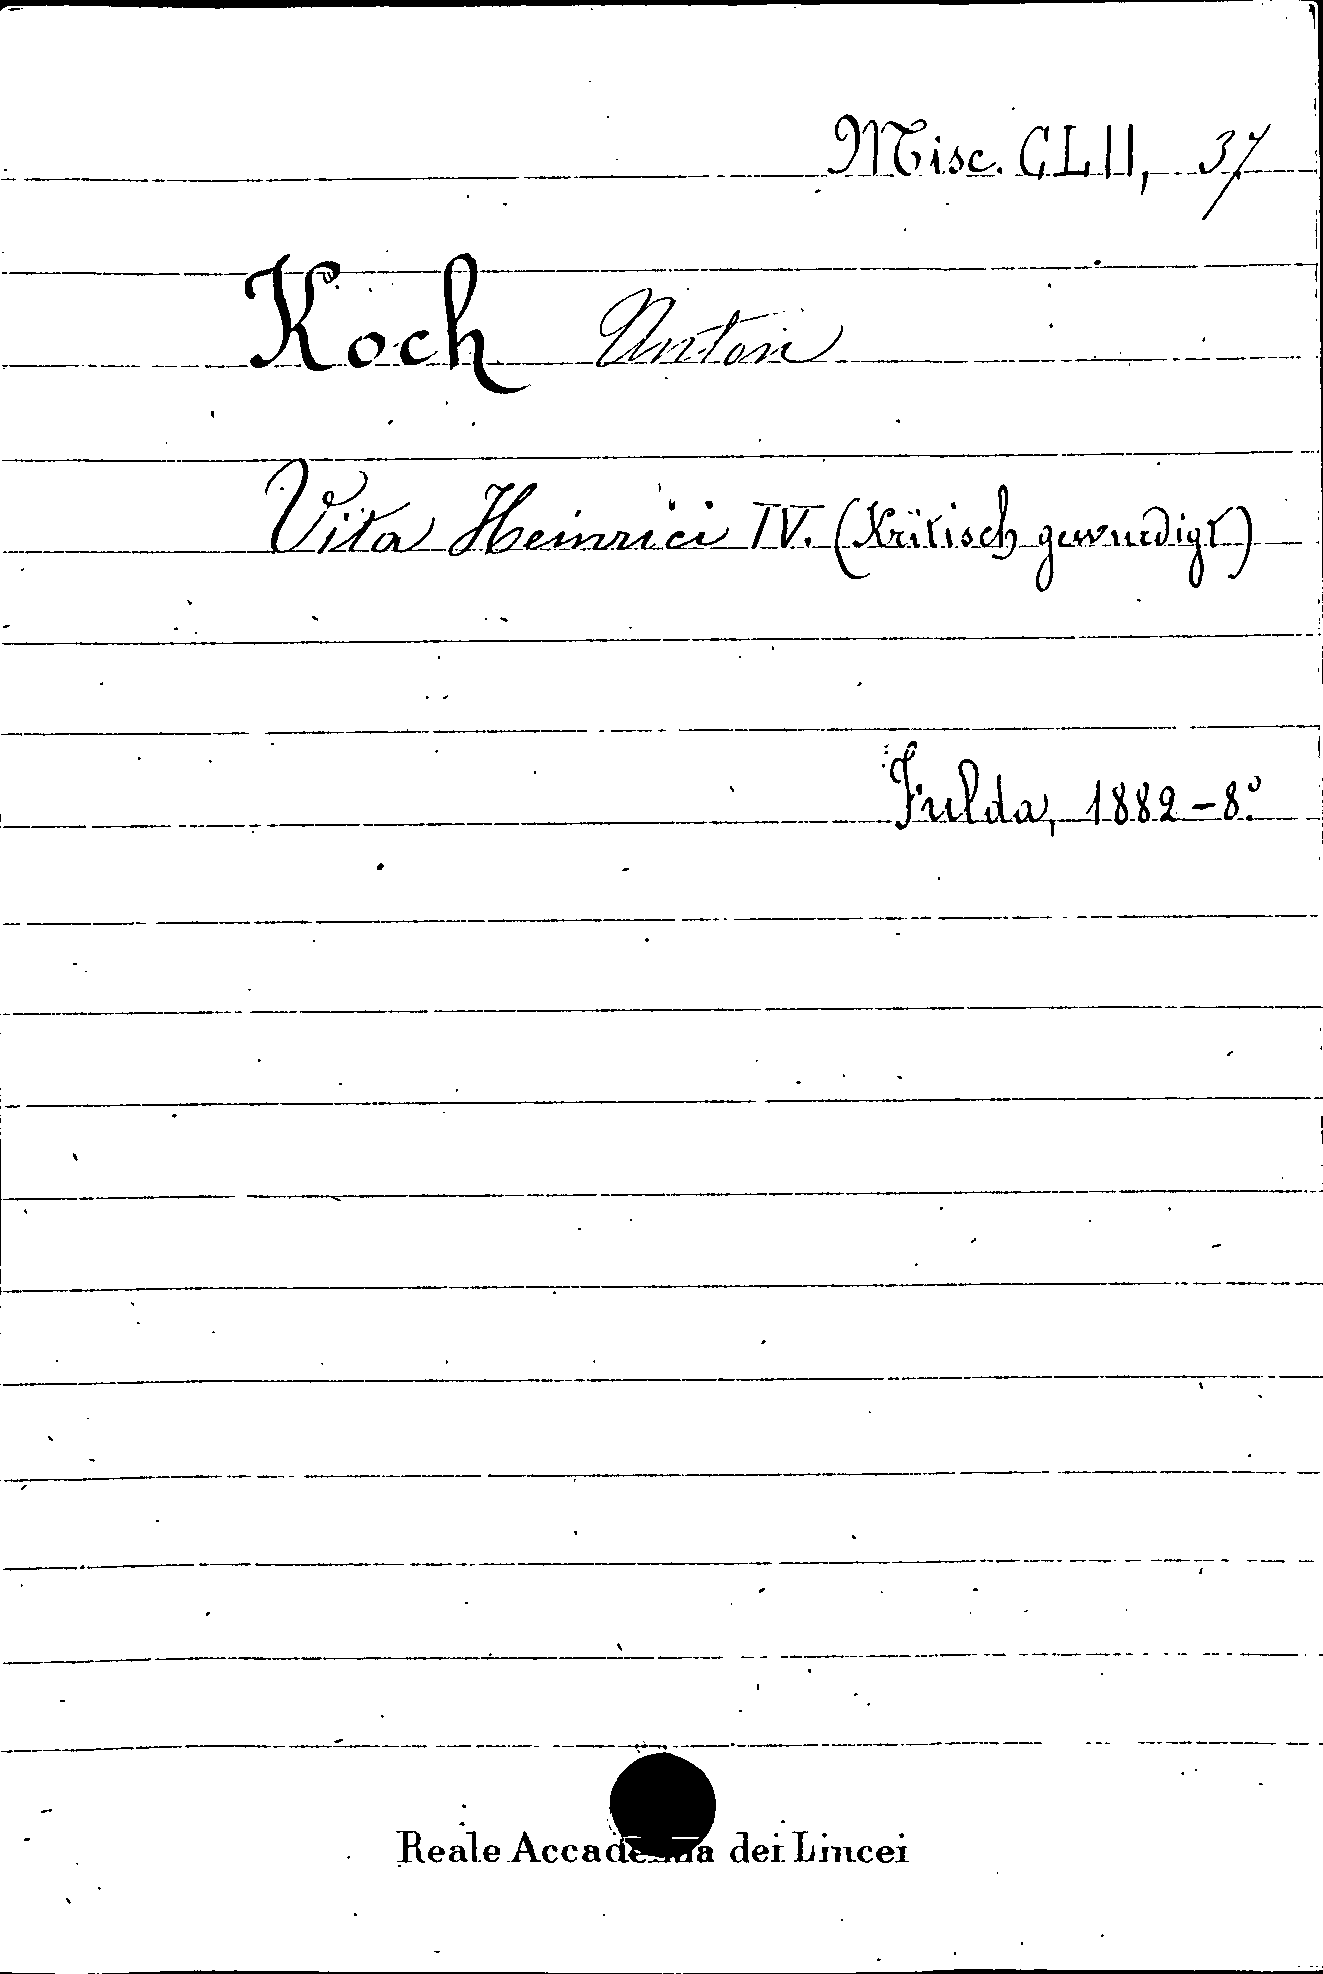 Misc. CLII, 37
Koch Anton
Vita Heinrici IV. (Kritisch gewurdigt)
Fulda, 1882-8.º
Reale Accademia dei Lincei